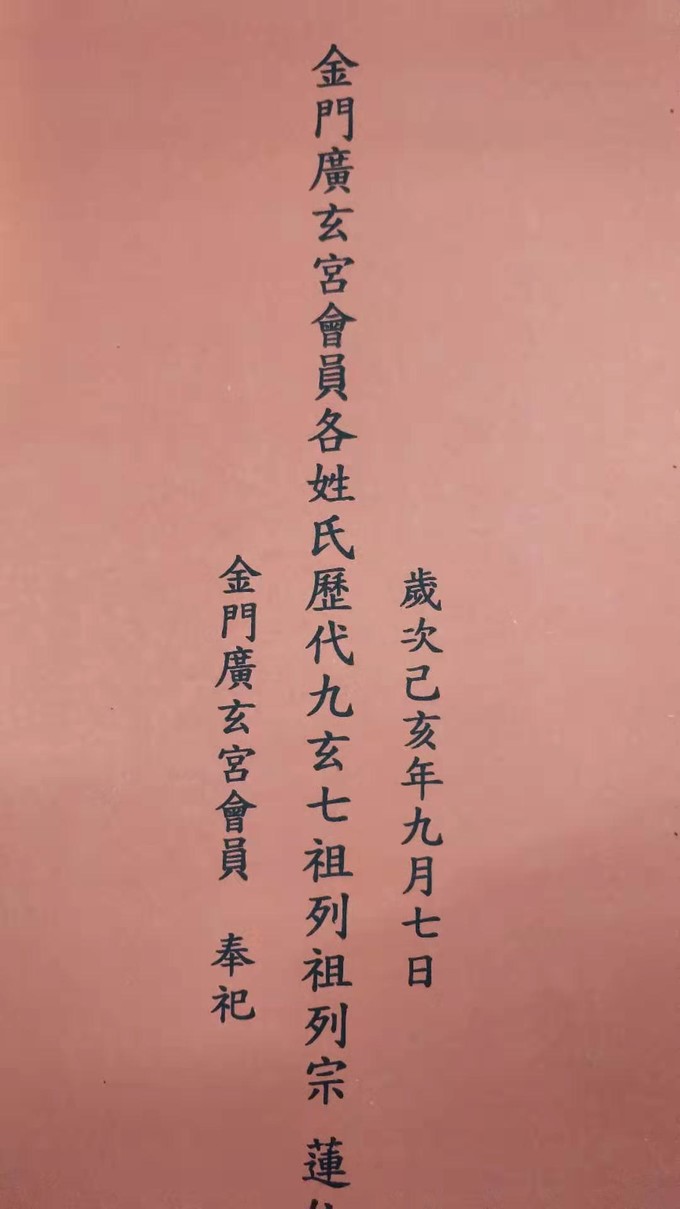 歲次己亥年九月七日
金門廣玄宮會員各姓氏歷代九玄七祖列祖列宗 蓮
金門廣玄宮會員 奉祀